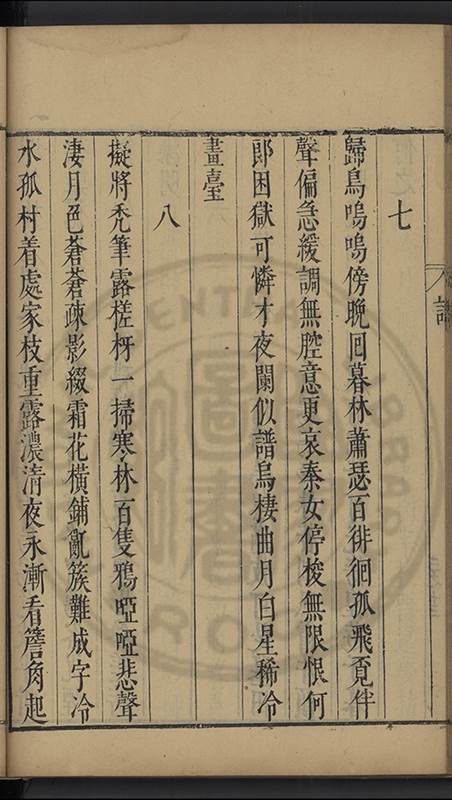 七
歸鳥嗚嗚傍晚回暮林蕭瑟百徘徊孤飛覓伴
聲偏急緩調無腔意更哀秦女停梭無限恨何
郎困獄可憐才夜闌似譜烏棲曲月白星稀冷
畫臺
八
擬將禿筆露槎枒一掃寒林百隻鴉啞啞悲聲
淒月色蒼蒼疎影綴霜花橫鋪亂簇難成字冷
水孤村着處家枝重露濃清夜永漸看簷角起